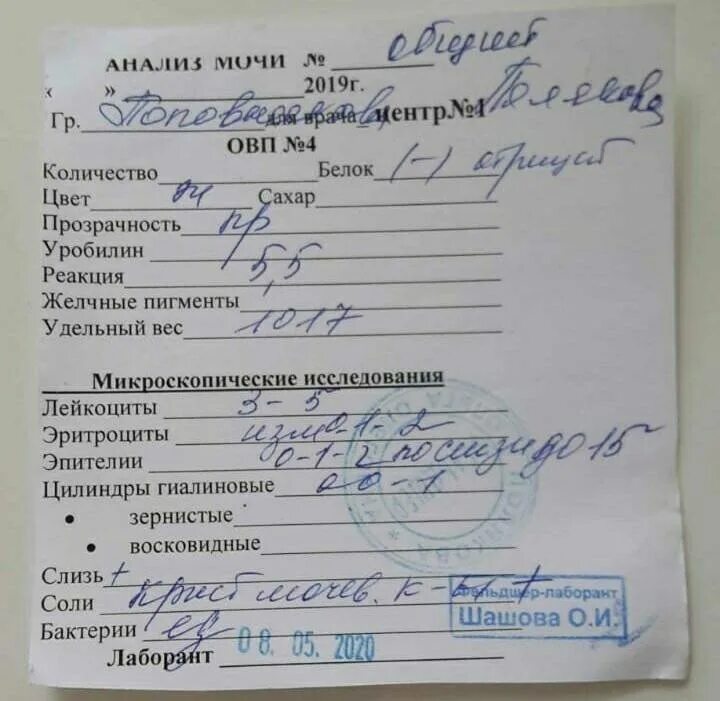 АНАЛИЗ МОЧИ № общий
« » 2019г.
Гр. для врача центр№1 Полякова
ОВП №4
Количество Белок (-) отрицат
Цвет Сахар
Прозрачность пр
Уробилин
Реакция 5,5
Желчные пигменты
Удельный вес 1017
Микроскопические исследования
Лейкоциты 3-5
Эритроциты изм 0-1-2
Эпителии 0-1-2 по слизи до 15
Цилиндры гиалиновые 0-1
• зернистые
• восковидные
Слизь +
Соли крист мочев. к-ты +
Бактерии ед
Фельдшер-лаборант
Шашова О.И.
Лаборант 08.05.2020